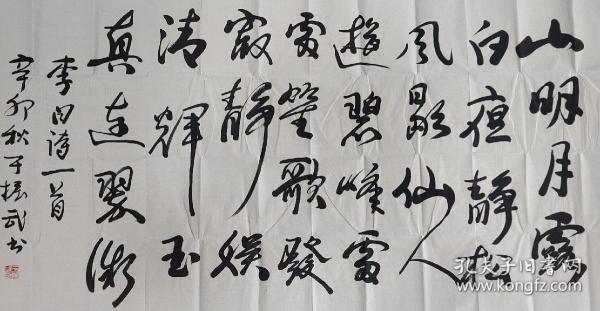 山明月露
白夜靜松
風歇仙人
遊碧峰處
處笙歌發
寂靜娱
清輝玉
真連翠微
李白诗一首
辛卯秋于振武书
孔夫子旧书网
www.kongfz.com